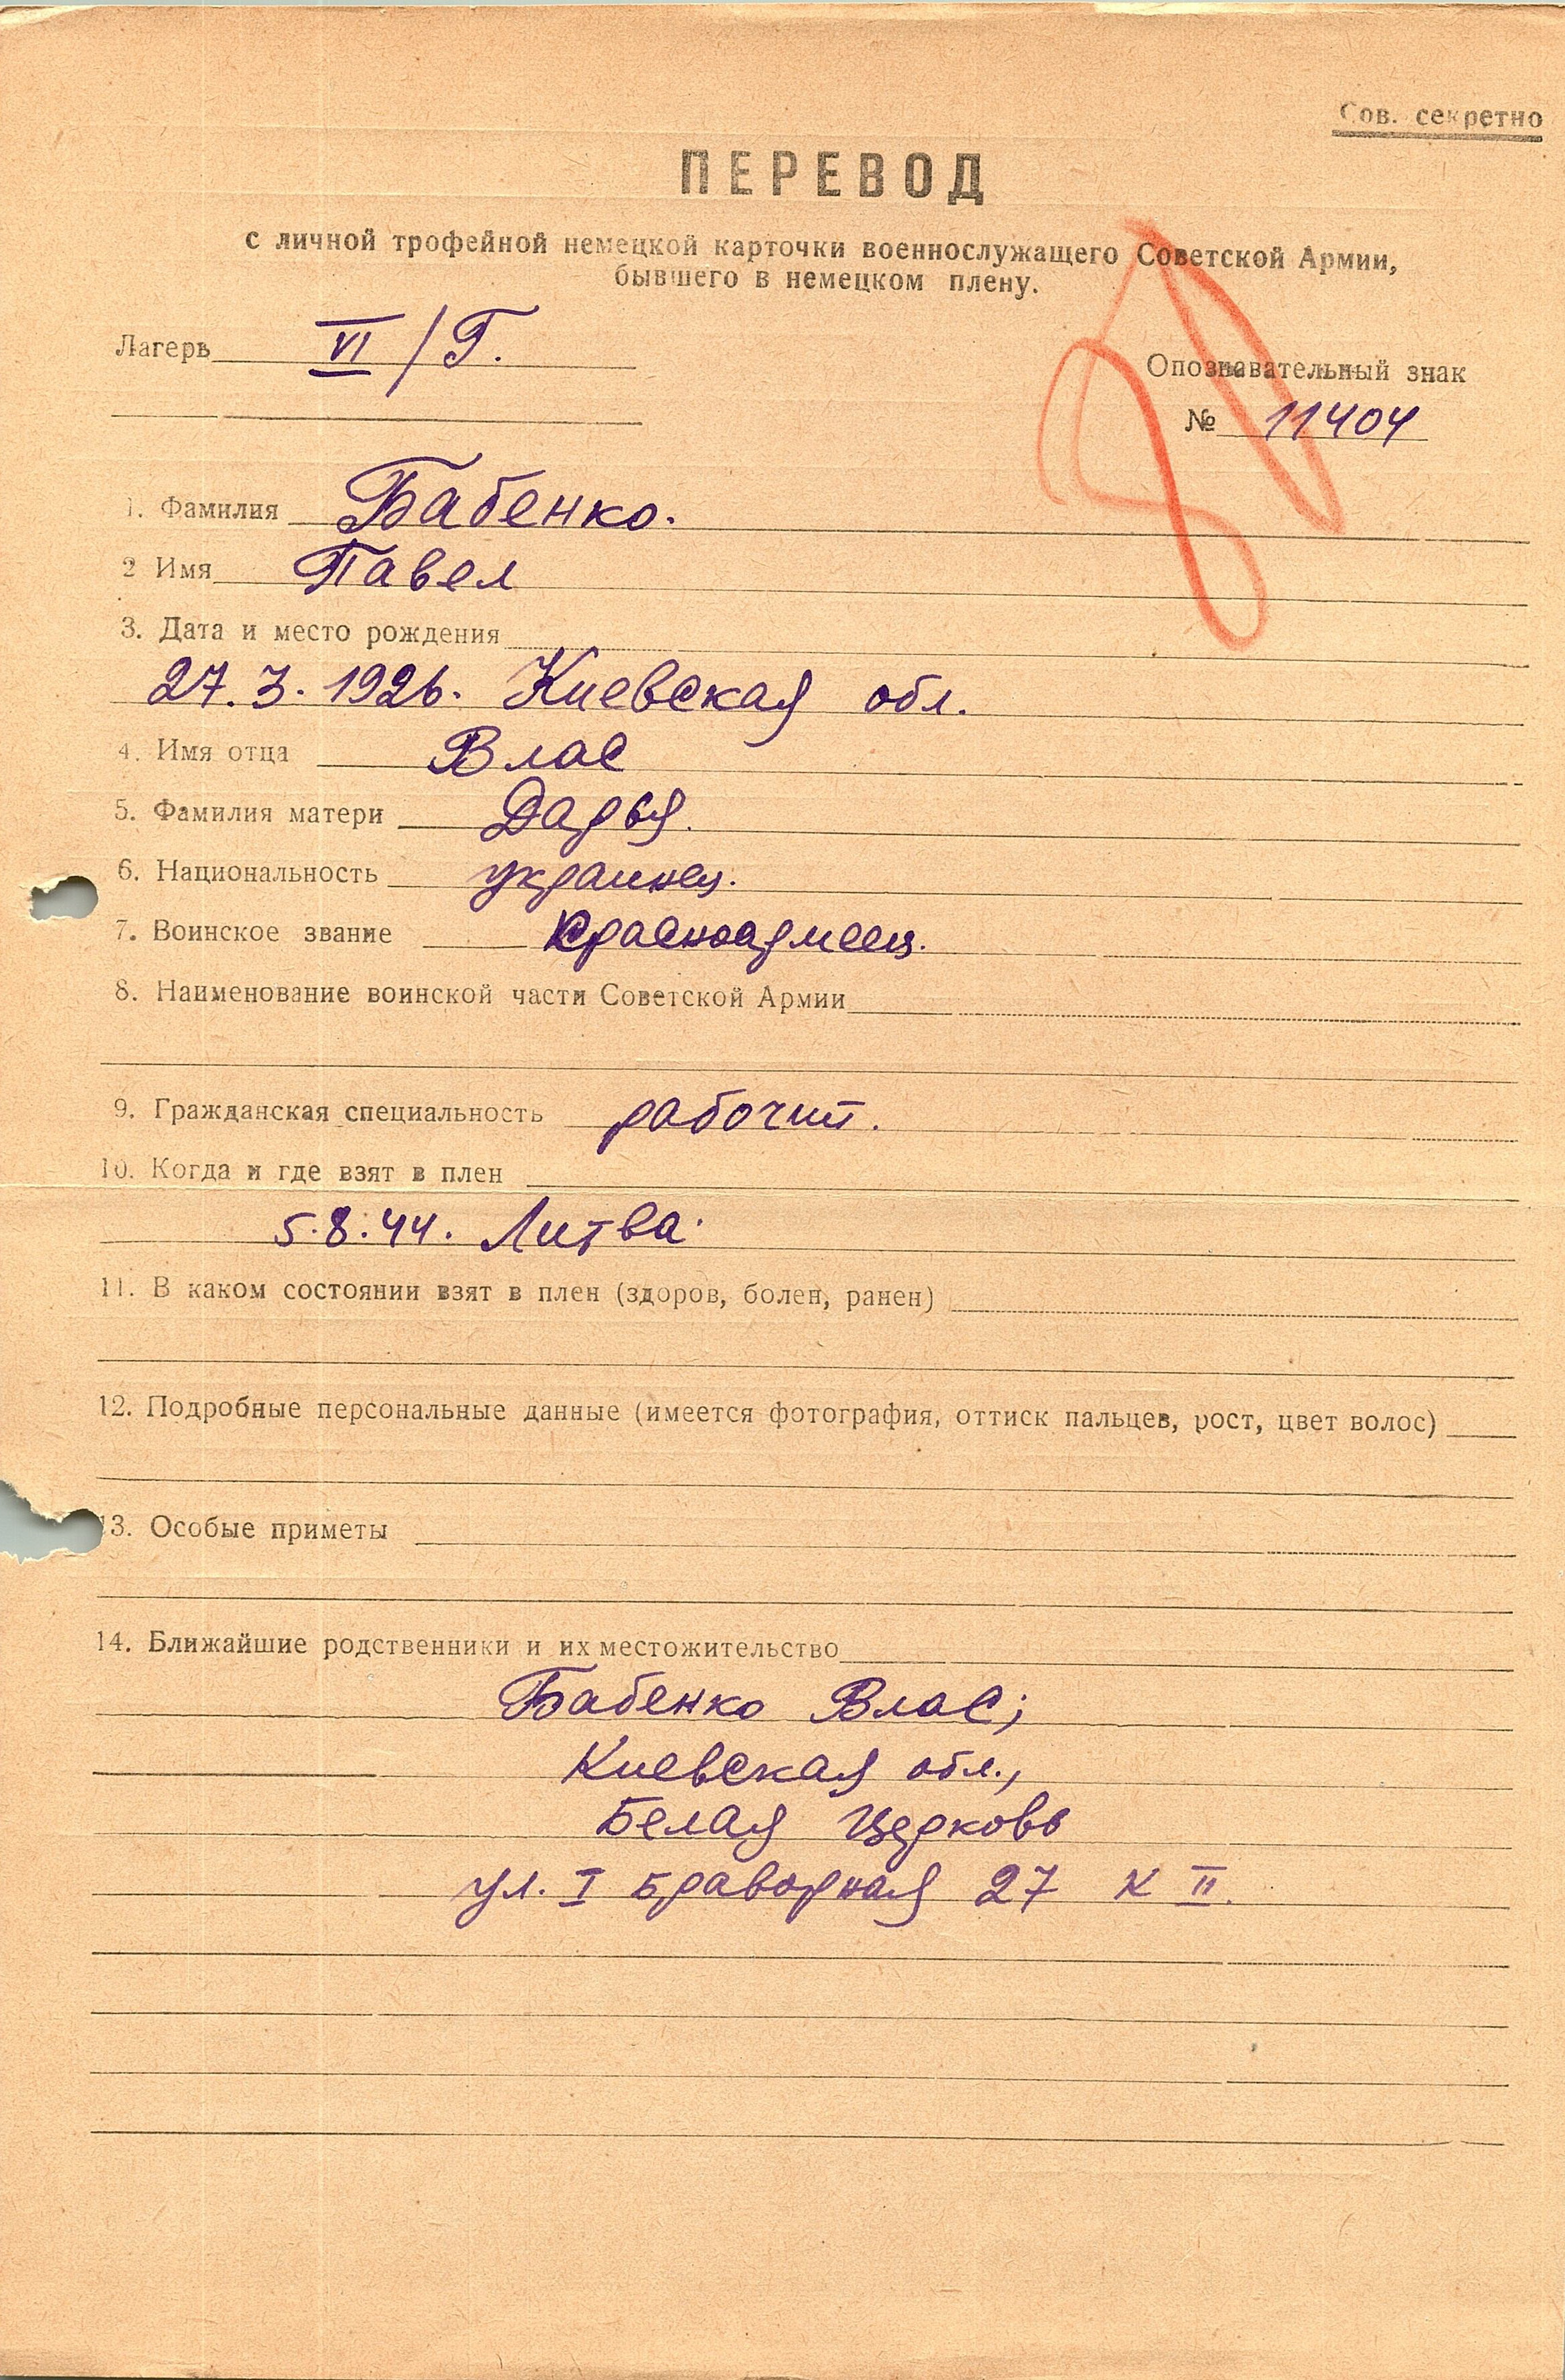 Сов. секретно
ПЕРЕВОД
с личной трофейной немецкой карточки военнослужащего Советской Армии,
бывшего в немецком плену.
Лагерь VI/Г.
Опознавательный знак
№ 11404
1. Фамилия Бабенко.
2 Имя Павел
3. Дата и место рождения
27.3.1926. Киевская обл.
4. Имя отца Влас
5. Фамилия матери Дарья.
6. Национальность украинец.
7. Воинское звание Красноармеец.
8. Наименование воинской части Советской Армии
9. Гражданская специальность рабочий.
10. Когда и где взят в плен
5.8.44. Литва.
11. В каком состоянии взят в плен (здоров, болен, ранен)
12. Подробные персональные данные (имеется фотография, оттиск пальцев, рост, цвет волос)
13. Особые приметы
14. Ближайшие родственники и их местожительство
Бабенко Влас;
Киевская обл.,
Белая Церковь
ул. I Браворная 27 к II.